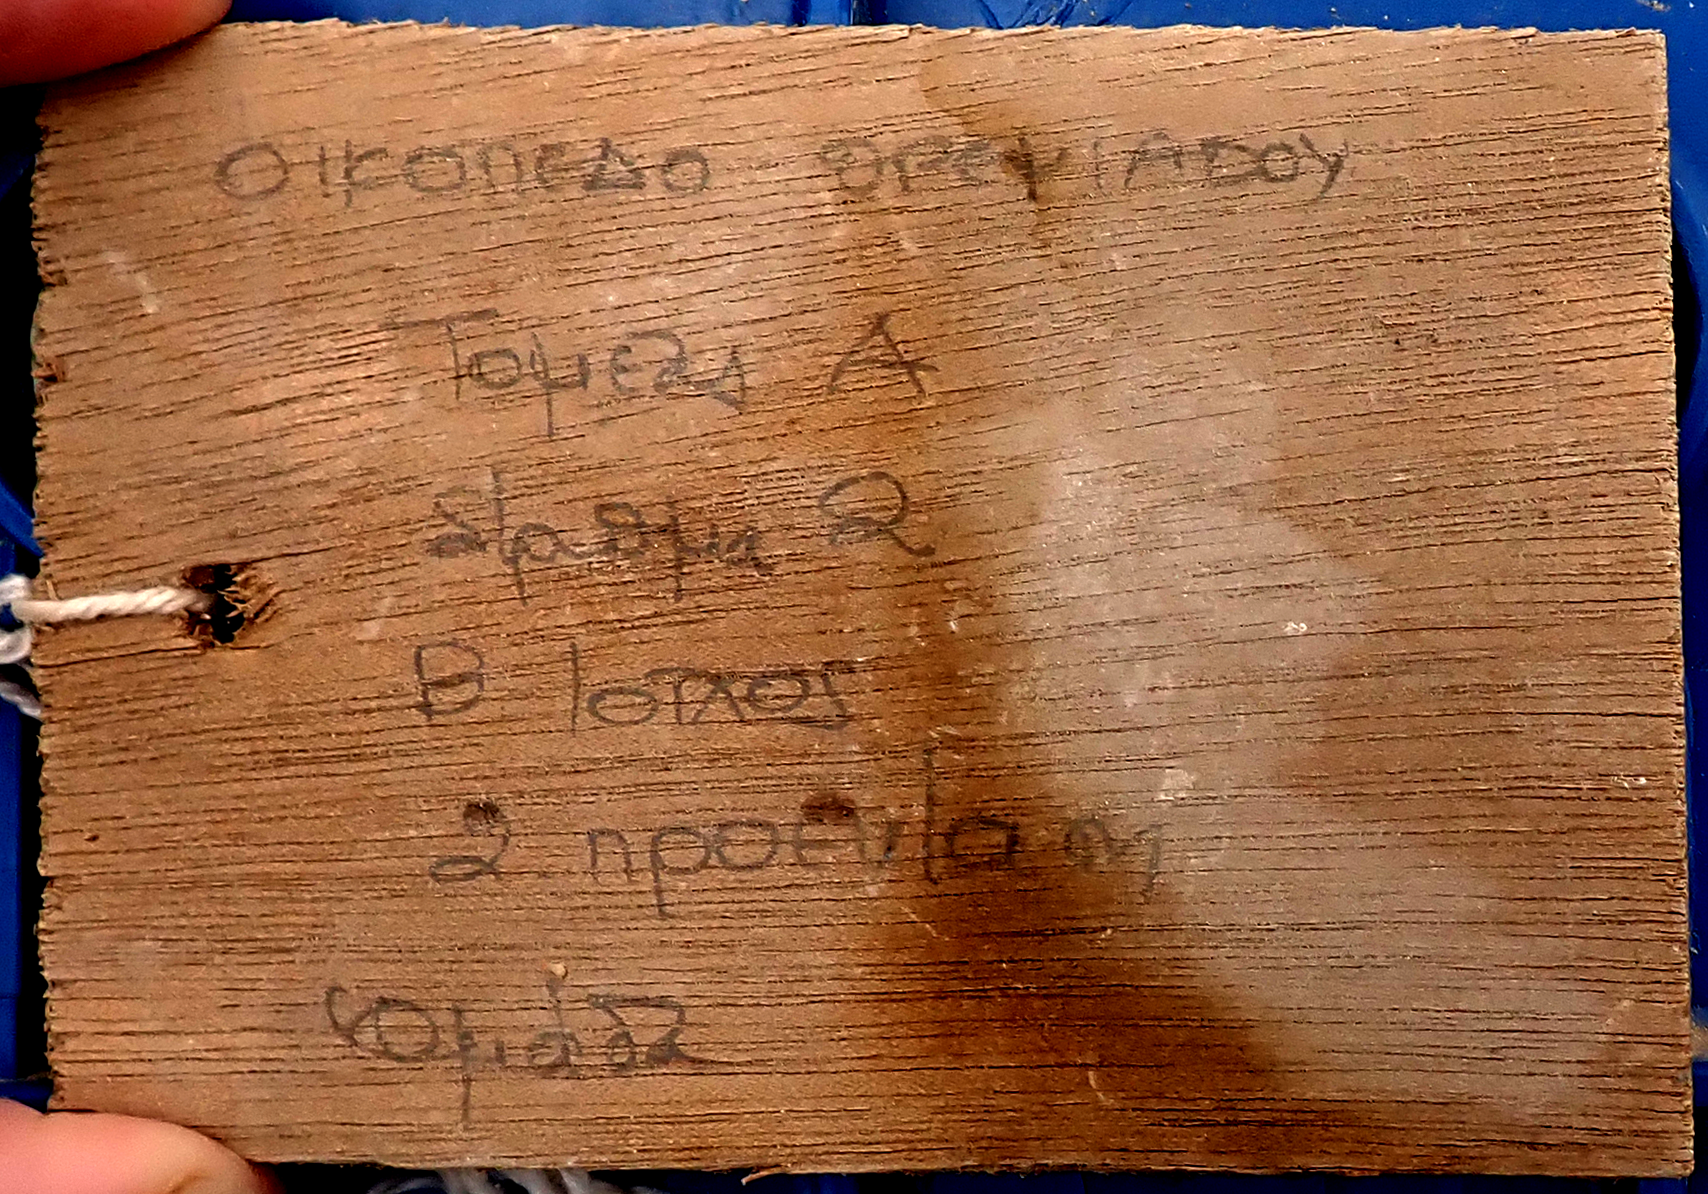 ΟΙΚΟΠΕΔΟ ΘΡΕΨΙΑΔΟΥ
Τομεας Α
Στρωμα 2
Β Τοιχος
2 προεκταση
Ομάδα